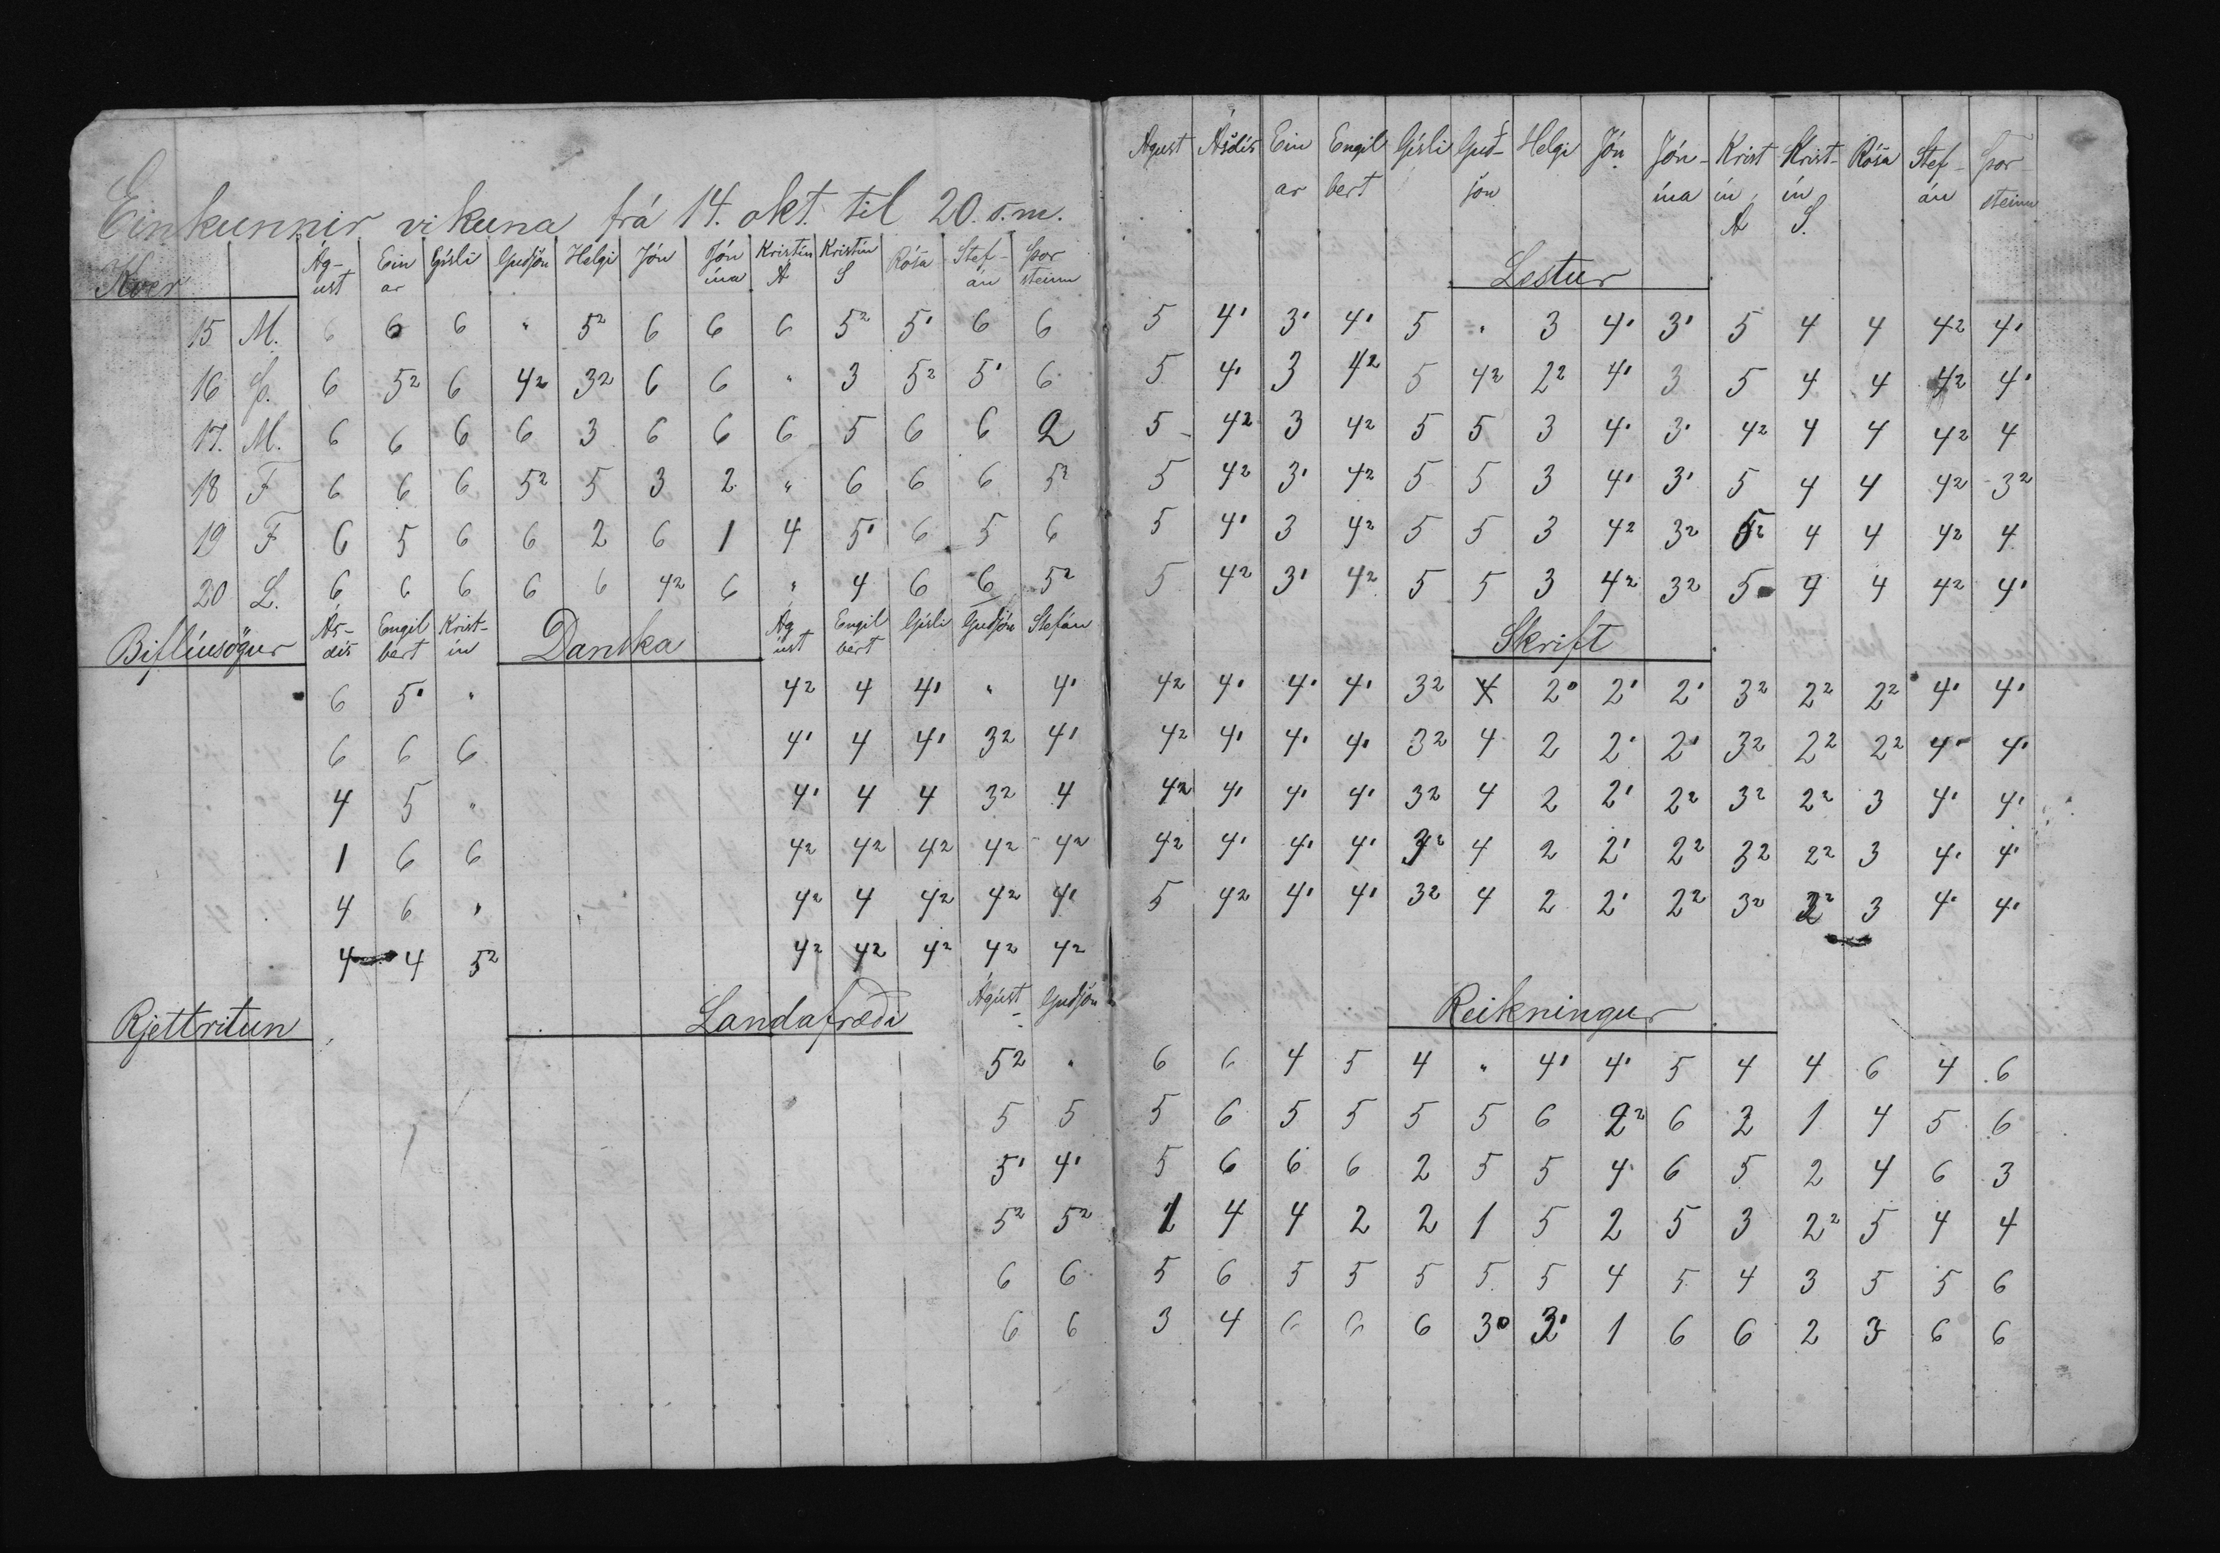 Einkunnir vikuna frá 14. okt. til 20. s.m.
Kver Ág-ust Einar Gísli Guðjón Helgi Jón Jónína Kristín A Kristín S Rósa Stef-án Þorsteinn
15 M. 6 6 6 " 5² 6 6 6 5² 5' 6 6
16 Þ. 6 5² 6 4² 3² 6 6 " 3 5² 5' 6
17. M. 6 6 6 6 3 6 6 6 5 6 6 2
18 F 6 6 6 5² 5 3 2 " 6 6 6 5²
19 F 6 5 6 6 2 6 1 4 5' 6 5 6
20 L. 6 6 6 6 6 4² 6 " 4 6 6 5²
Biflíusögur Ás-dís Engilbert Krist-ín Danska Ágúst Engilbert Gísli Guðjón Stefán
6 5' " 4² 4 4' " 4'
6 6 6 4' 4 4' 3² 4'
4 5 " 4' 4 4 3² 4
1 6 6 4² 4² 4² 4² 4²
4 6 " 4² 4 4² 4² 4'
4 4 5² 4² 4² 4² 4² 4²
Rjettritun Landafræði Ágúst Guðjón
5² "
5 5
5' 4'
5² 5²
6 6
6 6
Águst Ásdís Einar Engilbert Gísli Guð-jón Helgi Jón Jón-ína Kristín A Krist-ín S. Rósa Stef-án Þor-steinn
Lestur
5 4' 3' 4' 5 " 3 4' 3' 5 4 4 4² 4'
5 4' 3 4² 5 4² 2² 4' 3 5 4 4 4² 4'
5 4² 3 4² 5 5 3 4' 3' 4² 4 4 4² 4
5 4² 3' 4² 5 5 3 4' 3' 5 4 4 4² 3²
5 4' 3 4² 5 5 3 4² 3² 5² 4 4 4² 4
5 4² 3' 4² 5 5 3 4² 3² 5 4 4 4² 4'
Skrift
4² 4' 4' 4' 3² 4 2' 2' 2' 3² 2² 2² 4' 4'
4² 4' 4' 4' 3² 4 2 2' 2' 3² 2² 2² 4' 4'
4² 4' 4' 4' 3² 4 2 2' 2² 3² 2² 3 4' 4'
4² 4' 4' 4' 3² 4 2 2' 2² 3² 2² 3 4' 4'
5 4² 4' 4' 3² 4 2 2' 2² 3² 2² 3 4' 4'
Reikningur
6 6 4 5 4 " 4' 4' 5 4 4 6 4 6
5 6 5 5 5 5 6 2² 6 2 1 4 5 6
5 6 6 6 2 5 5 4 6 5 2 4 6 3
1 4 4 2 2 1 5 2 5 3 2² 5 4 4
5 6 5 5 5 5 5 4 5 4 3 5 5 6
3 4 6 6 6 3 3' 1 6 6 2 3 6 6